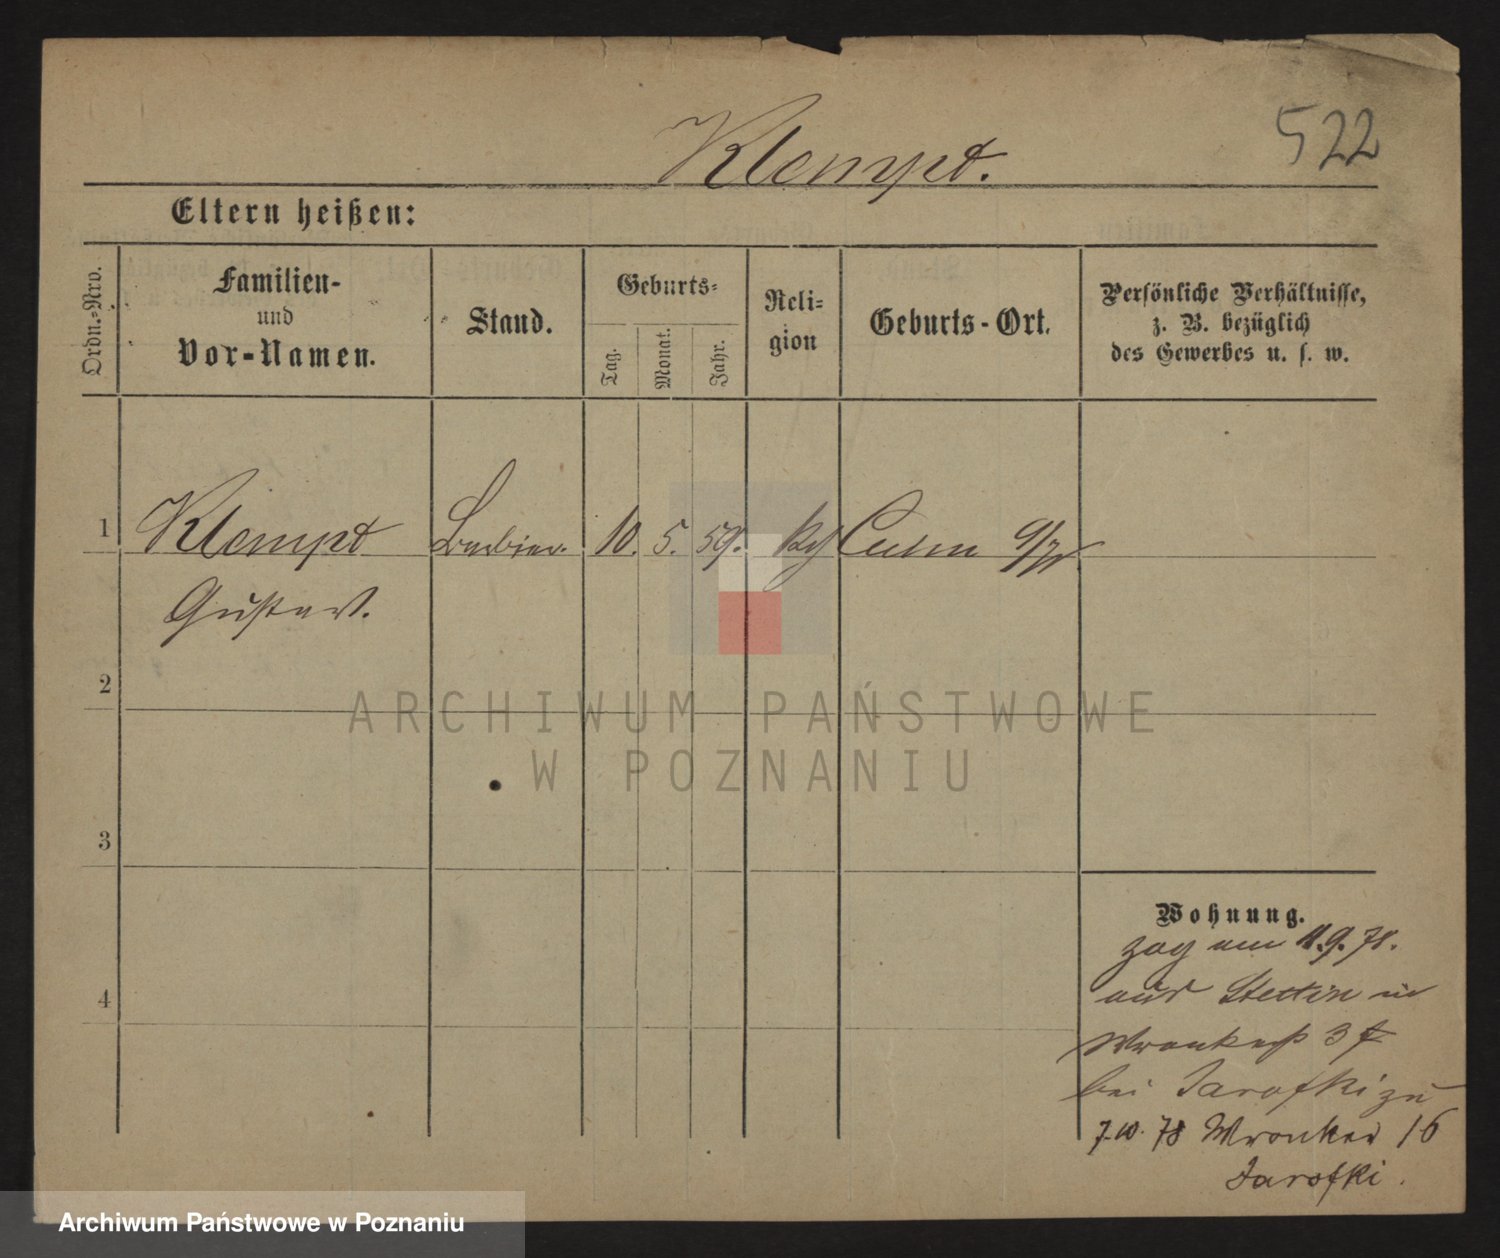 522
Klempt.
Eltern heißen:
Ordn.-Nro.
Familien-
und
Vor-Namen.
Stand.
Geburts-
Tag.
Monat.
Jahr.
Reli-
gion
Geburts-Ort.
Persönliche Verhältnisse,
z. B. bezüglich
des Gewerbes u. s. w.
1 Klempt Barbier. 10. 5. 59. Culm
Gustav.
2
3
4
Wohnung.
zog am 11.9.78.
aus Stettin in
3
bei Jarofki zu
7.10.78 Wronker 16
Jarofki.
ARCHIWUM PAŃSTWOWE
W POZNANIU
Archiwum Państwowe w Poznaniu